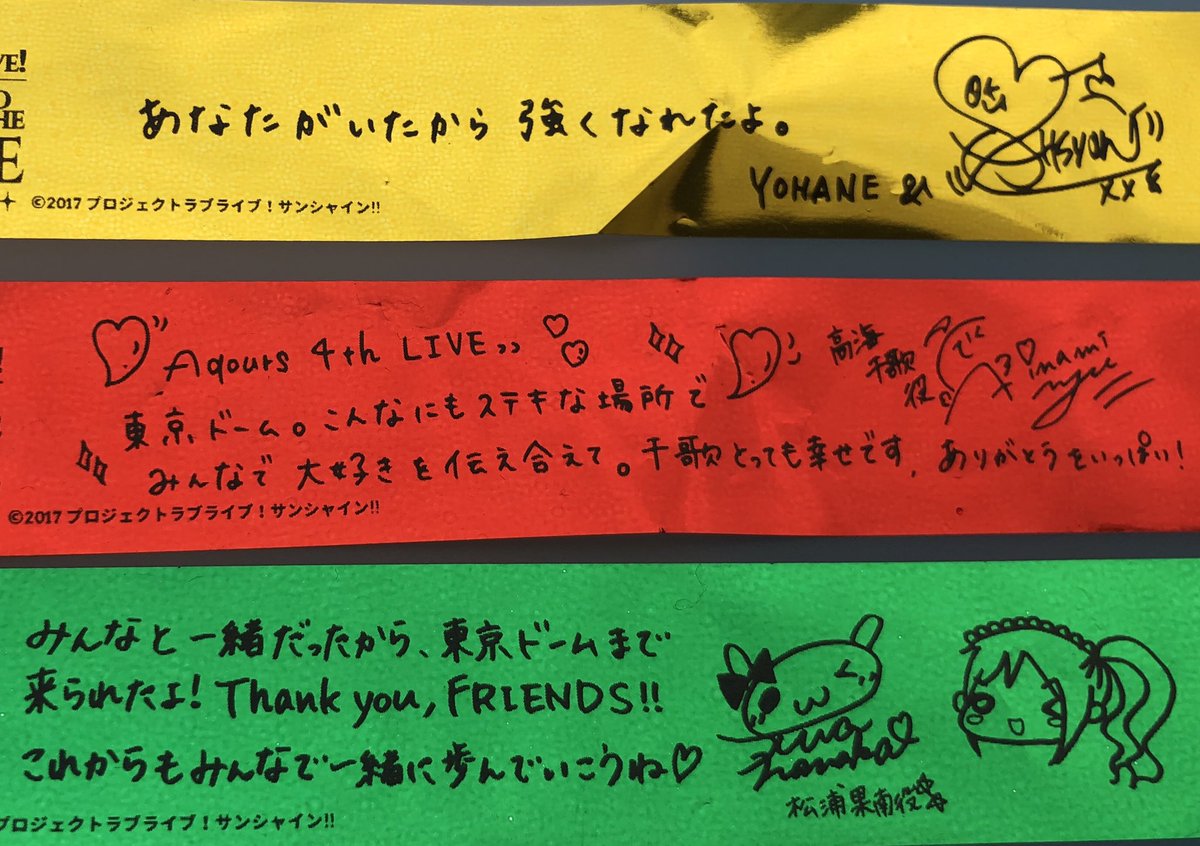 VE!
HE
E
あなたがいたから 強くなれたよ。
YOHANE &
©2017 プロジェクトラブライブ！サンシャイン!!
Aqours 4th LIVE
東京ドーム。こんなにもステキな場所で
みんなで 大好きを伝え合えて。千歌とっても幸せです, ありがとうをいっぱい!
高海
千歌
役。
©2017 プロジェクトラブライブ！サンシャイン!!
みんなと一緒だったから、東京ドームまで
来られたよ! Thank you, FRIENDS!!
これからもみんなで一緒に歩んでいこうね♡
松浦果南役
プロジェクトラブライブ！サンシャイン!!